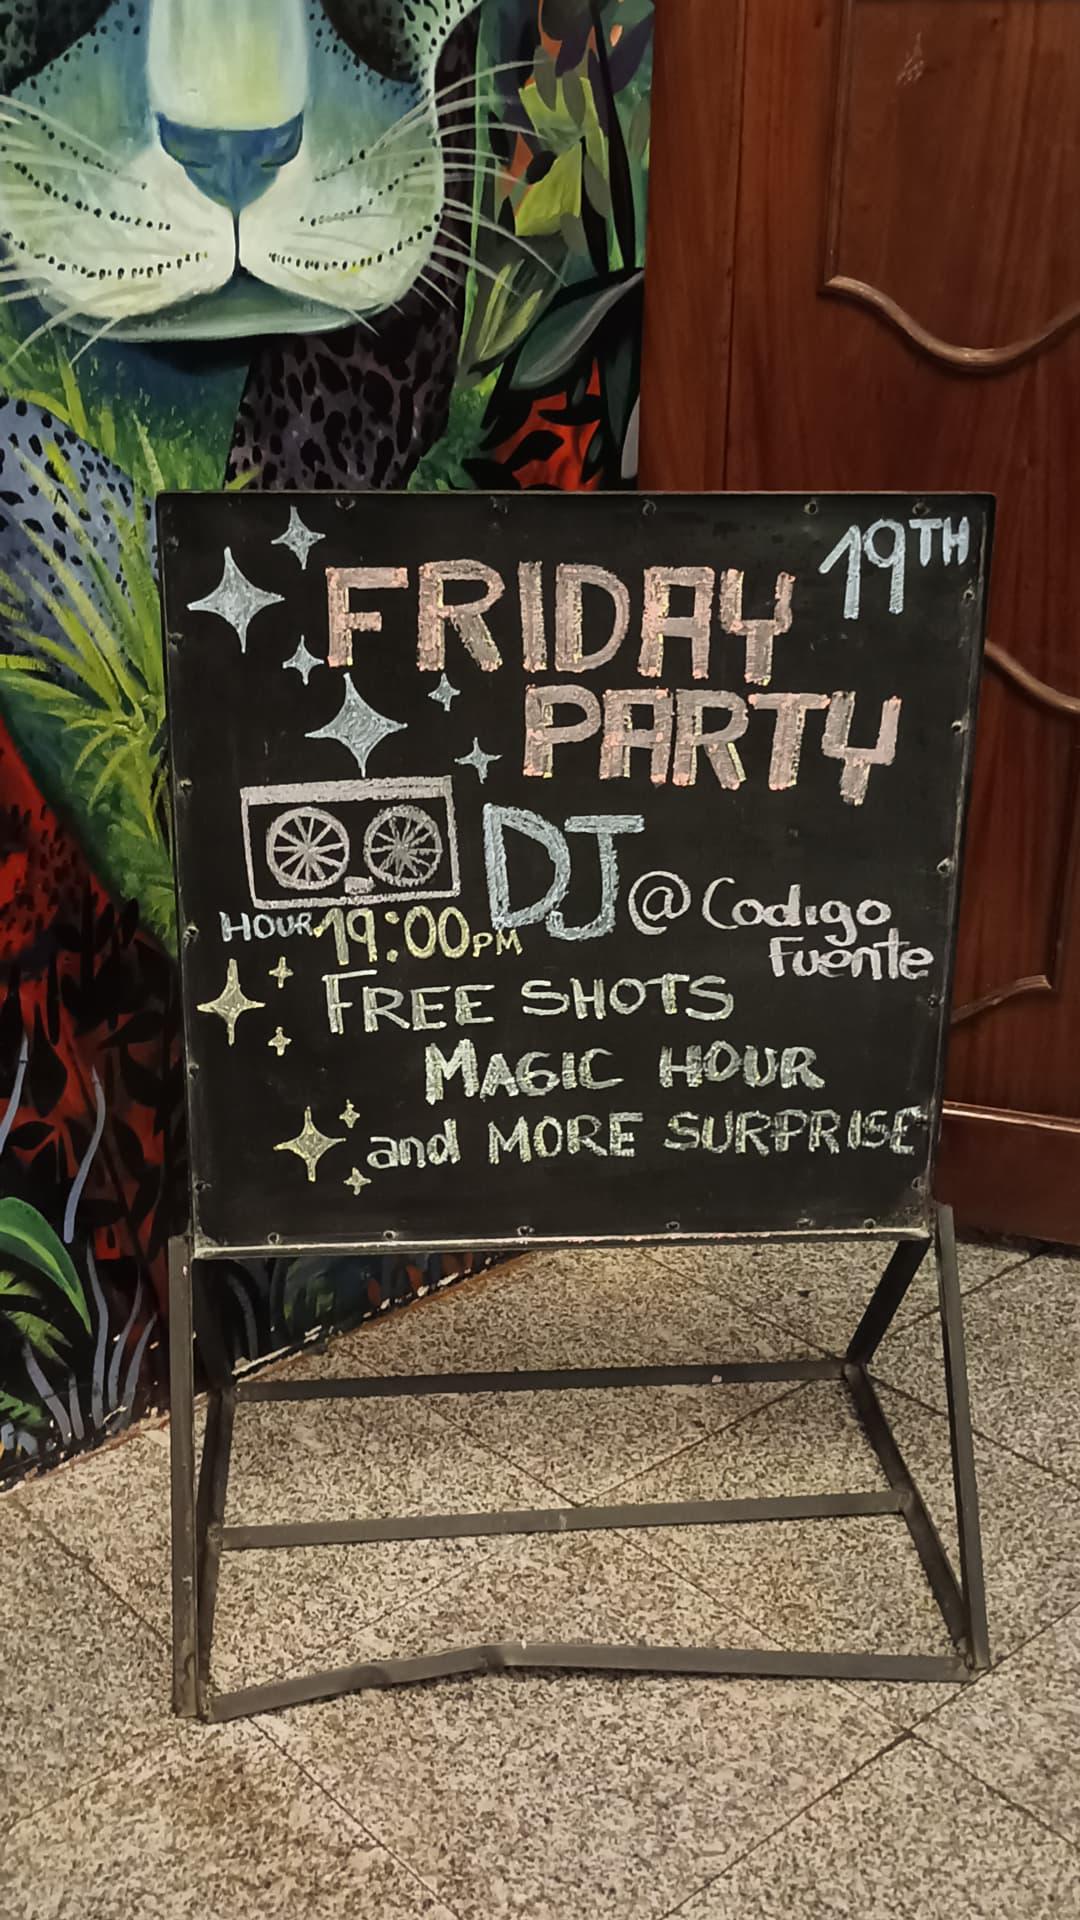 19TH
FRIDAY
PARTY
DJ @ Codigo
Fuente
HOUR 19:00PM
FREE SHOTS
MAGIC HOUR
and MORE SURPRISE